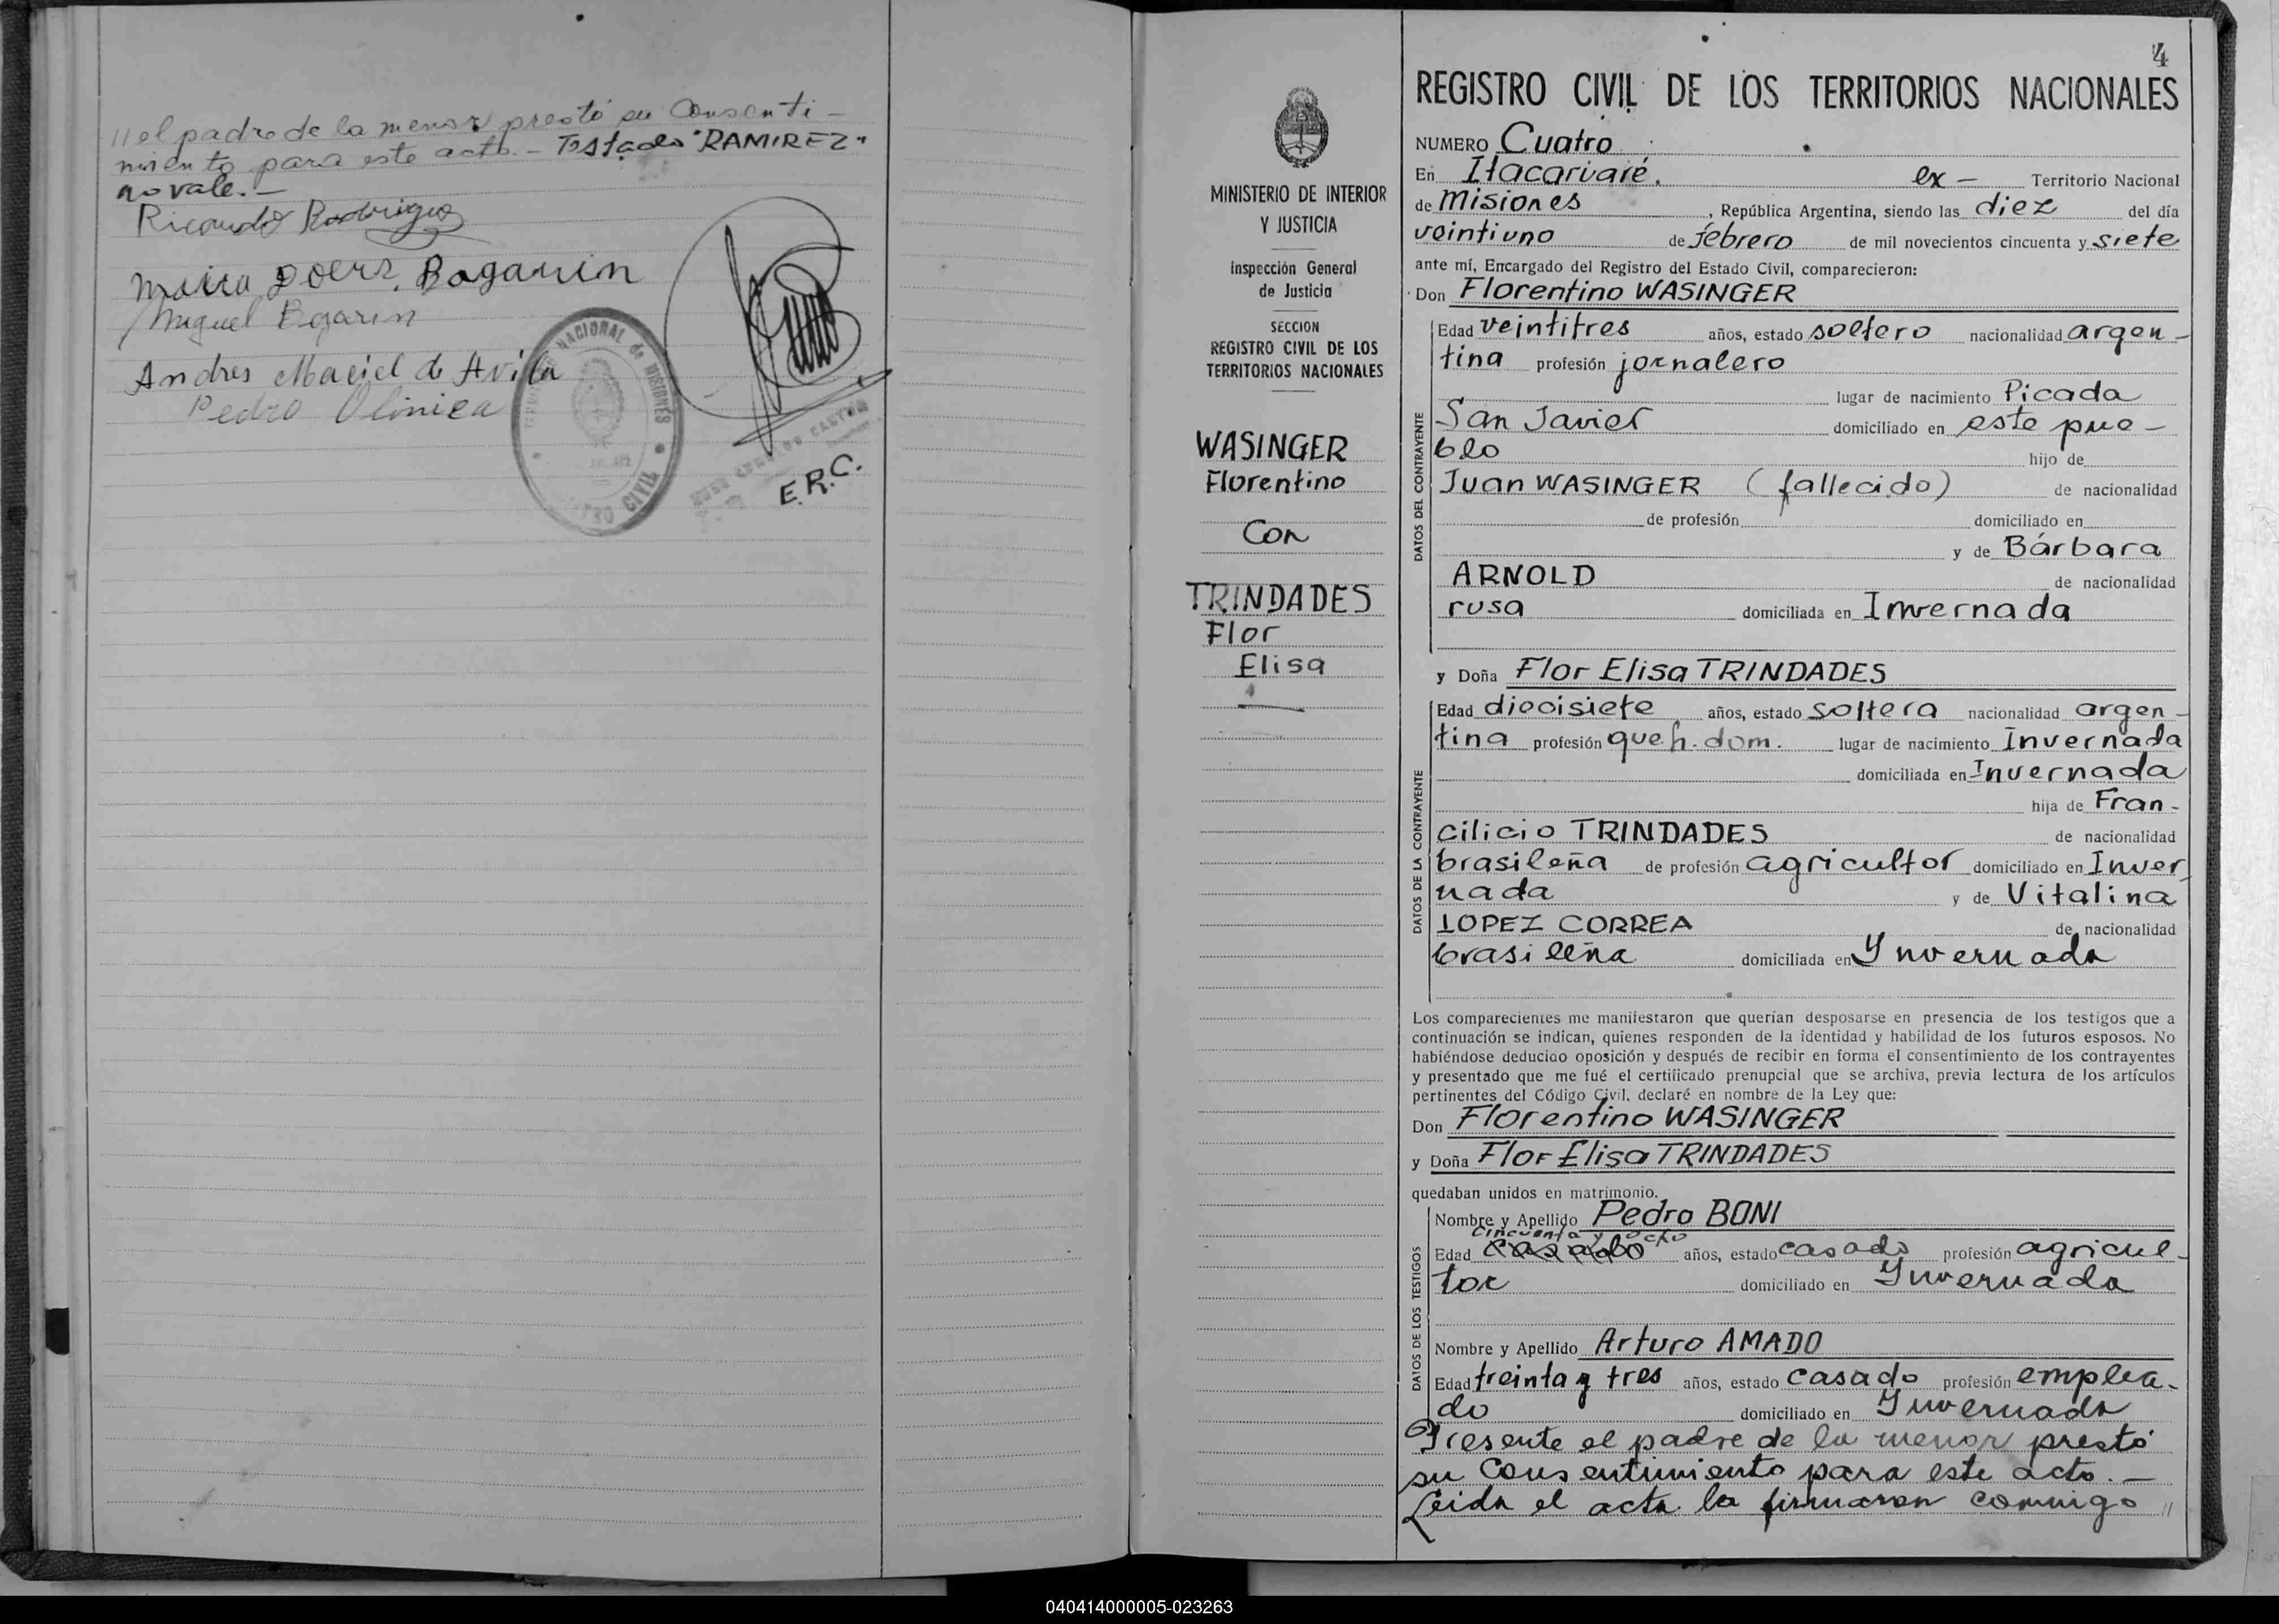 // el padre de la menor prestó su Consenti-
miento para este acto.- Testado "RAMIREZ"
no vale.-
Ricardo Rodrigues
Maria Doers. Bogarin
Miguel Bogarin
Andres Maciel de Avila
Pedro Olinica
NACIONAL de MISIONES
CIVIL
E.R.C.
4
REGISTRO CIVIL DE LOS TERRITORIOS NACIONALES
MINISTERIO DE INTERIOR
Y JUSTICIA
Inspección General
de Justicia
SECCION
REGISTRO CIVIL DE LOS
TERRITORIOS NACIONALES
WASINGER
Florentino
Con
TRINDADES
Flor
Elisa
NUMERO Cuatro
En Itacaruaré. ex- Territorio Nacional
de Misiones, República Argentina, siendo las diez del día
veintiuno de febrero de mil novecientos cincuenta y siete
ante mí, Encargado del Registro del Estado Civil, comparecieron:
Don Florentino WASINGER
DATOS DEL CONTRAYENTE
Edad veintitres años, estado soltero nacionalidad argen-
tina profesión jornalero
lugar de nacimiento Picada
San Javier domiciliado en este pue-
blo hijo de
Juan WASINGER (fallecido) de nacionalidad
de profesión domiciliado en
y de Bárbara
ARNOLD de nacionalidad
rusa domiciliada en Invernada
y Doña Flor Elisa TRINDADES
DATOS DE LA CONTRAYENTE
Edad diecisiete años, estado soltera nacionalidad argen-
tina profesión queh. dom. lugar de nacimiento Invernada
domiciliada en Invernada
hija de Fran-
cilicio TRINDADES de nacionalidad
brasileña de profesión agricultor domiciliado en Inver
nada y de Vitalina
LOPEZ CORREA de nacionalidad
brasileña domiciliada en Ynvernada
Los comparecientes me manifestaron que querían desposarse en presencia de los testigos que a
continuación se indican, quienes responden de la identidad y habilidad de los futuros esposos. No
habiéndose deducido oposición y después de recibir en forma el consentimiento de los contrayentes
y presentado que me fué el certificado prenupcial que se archiva, previa lectura de los artículos
pertinentes del Código Civil, declaré en nombre de la Ley que:
Don Florentino WASINGER
y Doña Flor Elisa TRINDADES
quedaban unidos en matrimonio.
DATOS DE LOS TESTIGOS
Nombre y Apellido Pedro BONI
cincuenta y ocho
Edad casado años, estado casado profesión agricul-
tor domiciliado en Ynvernada
Nombre y Apellido Arturo AMADO
Edad treinta y tres años, estado casado profesión emplea-
do domiciliado en Ynvernada
Presente el padre de la menor prestó
su Consentimiento para este acto.-
Leida el acta la firmaron conmigo //
040414000005-023263